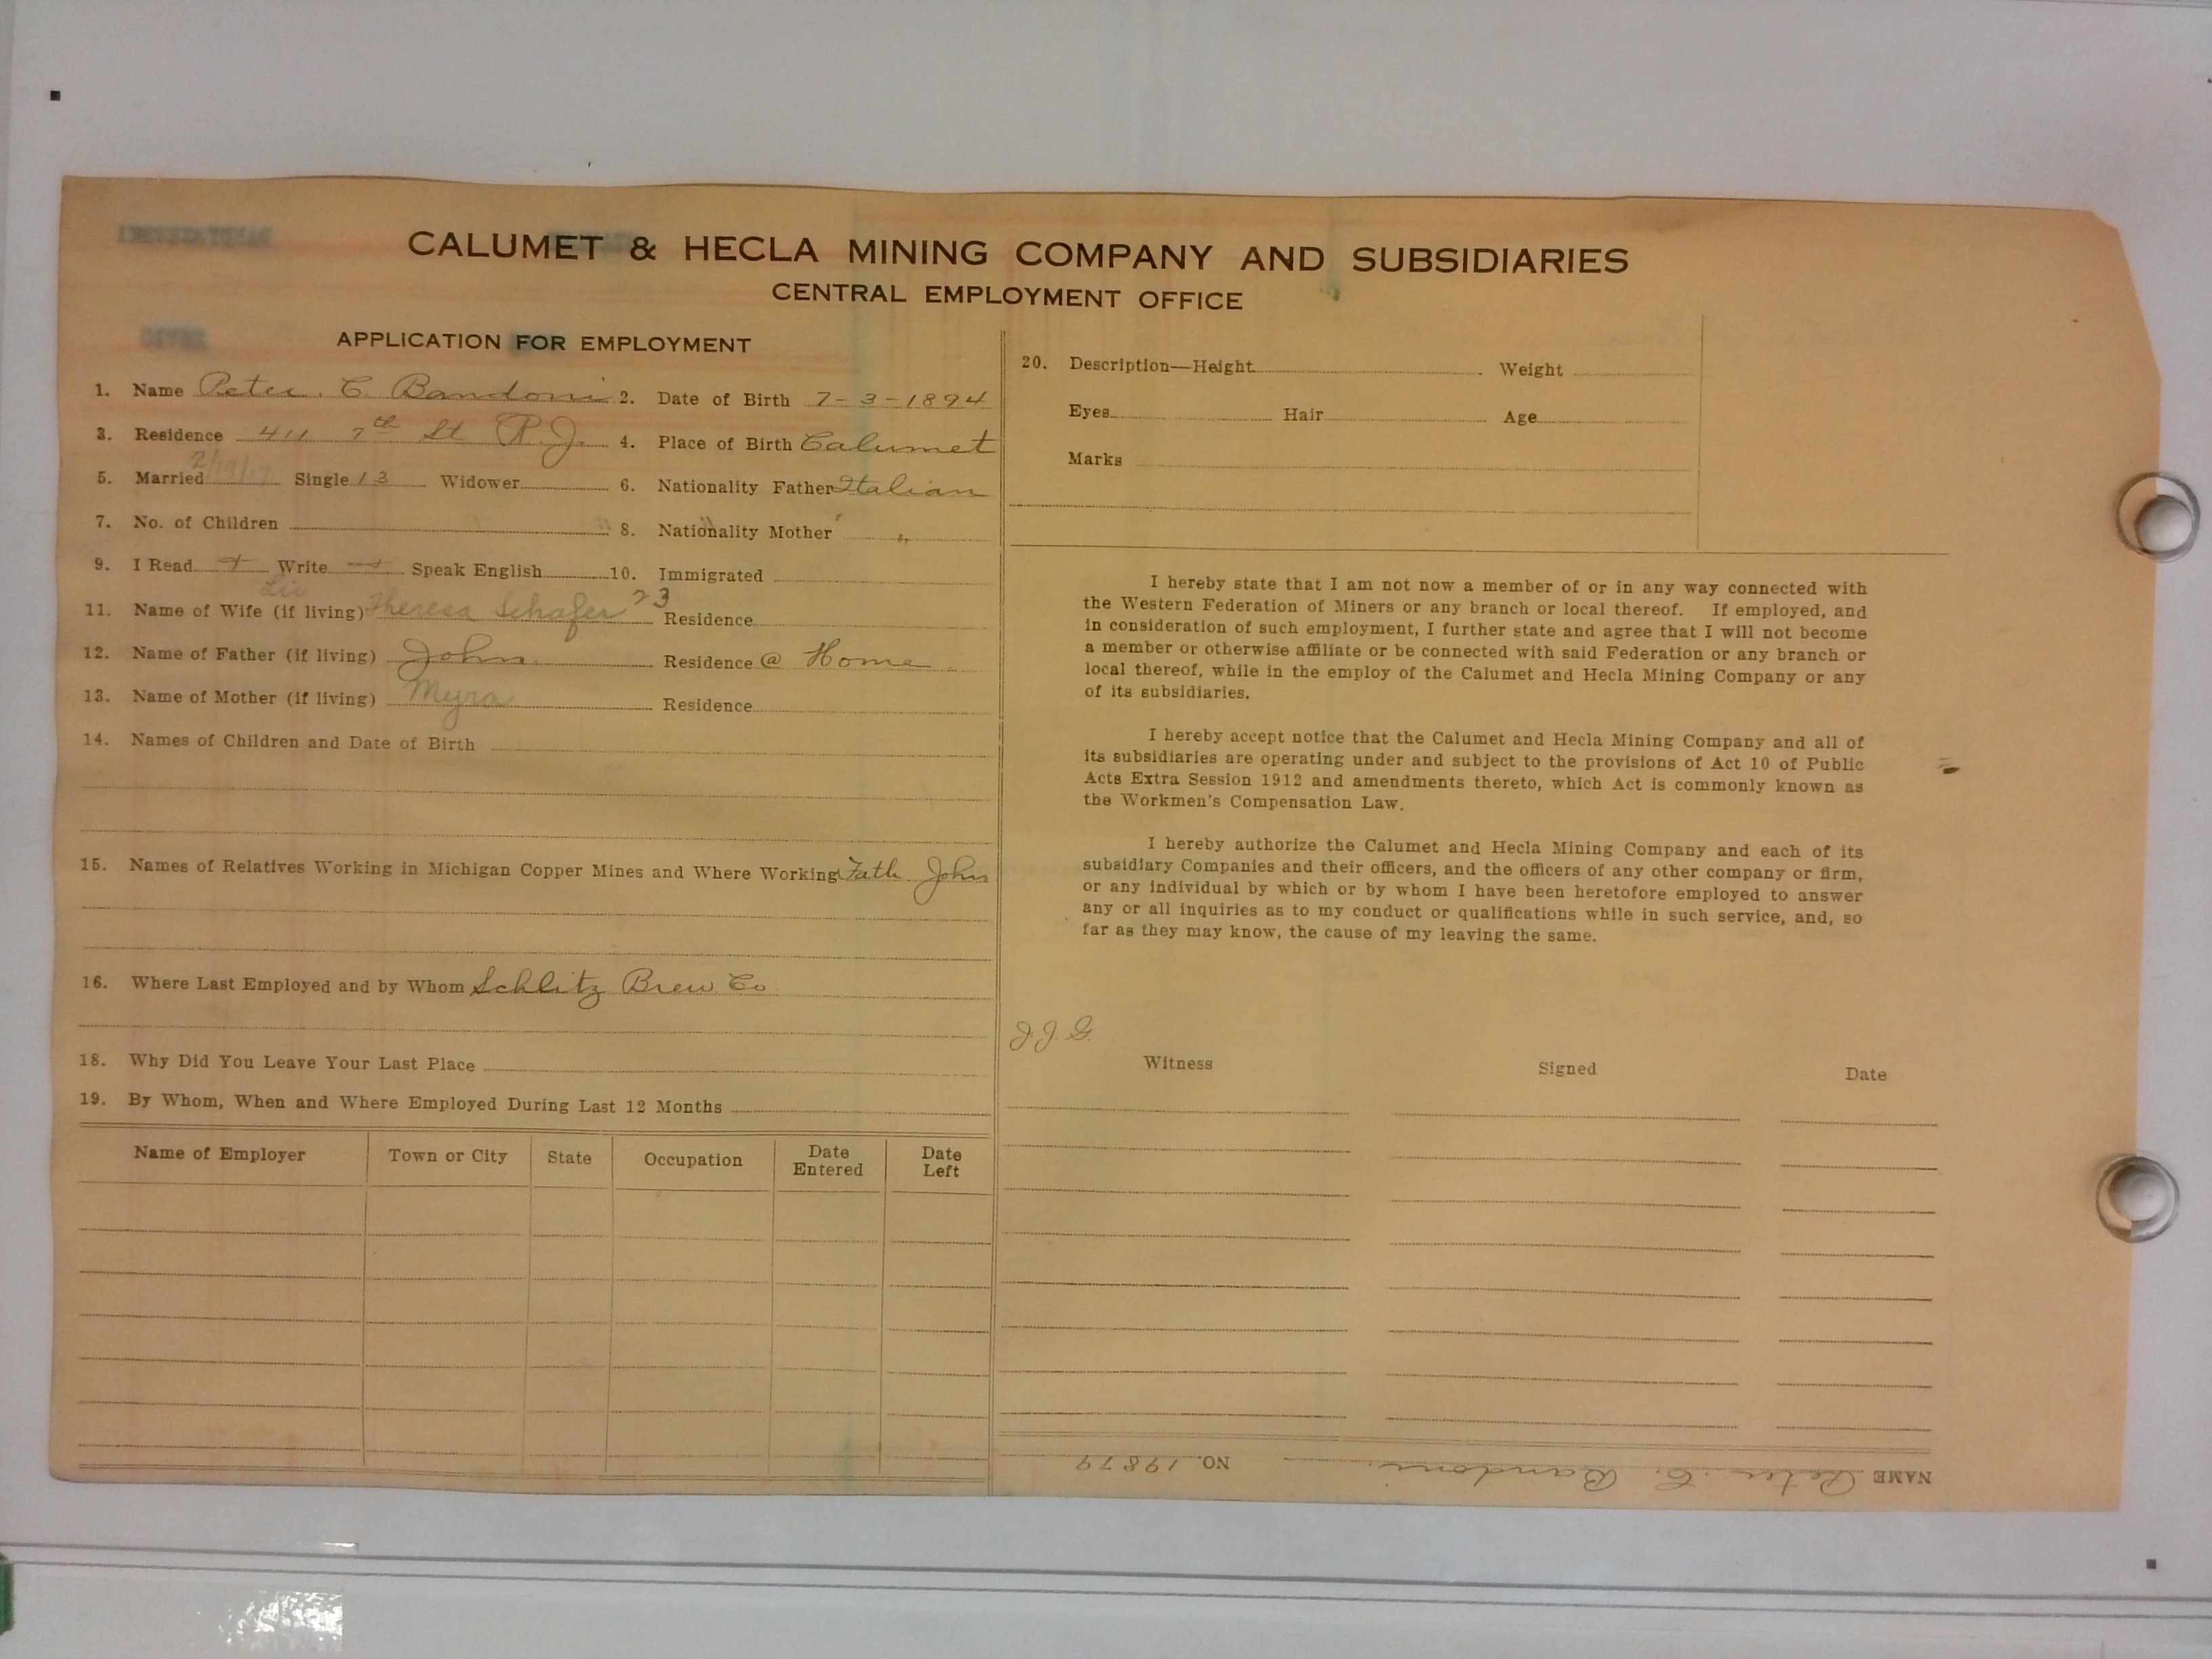 CALUMET & HECLA MINING COMPANY AND SUBSIDIARIES
CENTRAL EMPLOYMENT OFFICE
APPLICATION FOR EMPLOYMENT
1. Name Peter. C. Bandoni 2. Date of Birth 7-3-1894
3. Residence 411 7th St R.J. 4. Place of Birth Calumet
5. Married 2/19/17 Single 13 Widower 6. Nationality Father Italian
7. No. of Children 8. Nationality Mother "
9. I Read + Write + Speak English 10. Immigrated
11. Name of Wife (if living) Theresa Schafer 23 Residence
12. Name of Father (if living) John Residence @ Home
13. Name of Mother (if living) Myra Residence
14. Names of Children and Date of Birth
15. Names of Relatives Working in Michigan Copper Mines and Where Working Fath John
16. Where Last Employed and by Whom Schlitz Brew Co
18. Why Did You Leave Your Last Place
19. By Whom, When and Where Employed During Last 12 Months
Name of Employer Town or City State Occupation Date Entered Date Left
20. Description—Height Weight
Eyes Hair Age
Marks
I hereby state that I am not now a member of or in any way connected with
the Western Federation of Miners or any branch or local thereof. If employed, and
in consideration of such employment, I further state and agree that I will not become
a member or otherwise affiliate or be connected with said Federation or any branch or
local thereof, while in the employ of the Calumet and Hecla Mining Company or any
of its subsidiaries.
I hereby accept notice that the Calumet and Hecla Mining Company and all of
its subsidiaries are operating under and subject to the provisions of Act 10 of Public
Acts Extra Session 1912 and amendments thereto, which Act is commonly known as
the Workmen's Compensation Law.
I hereby authorize the Calumet and Hecla Mining Company and each of its
subsidiary Companies and their officers, and the officers of any other company or firm,
or any individual by which or by whom I have been heretofore employed to answer
any or all inquiries as to my conduct or qualifications while in such service, and, so
far as they may know, the cause of my leaving the same.
J.J.G.
Witness Signed Date
NAME Peter. C. Bandoni. NO. 19879